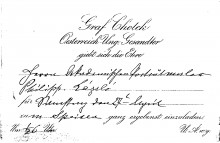 Graf Chotek
Oesterreich. Ung. Gesandter
gibt sich die Ehre
Herrn
Philipp László
für Dienstag den 27ten April
zum Speisen ganz ergebenst einzuladen
Um 6½ Uhr U. A. w. g